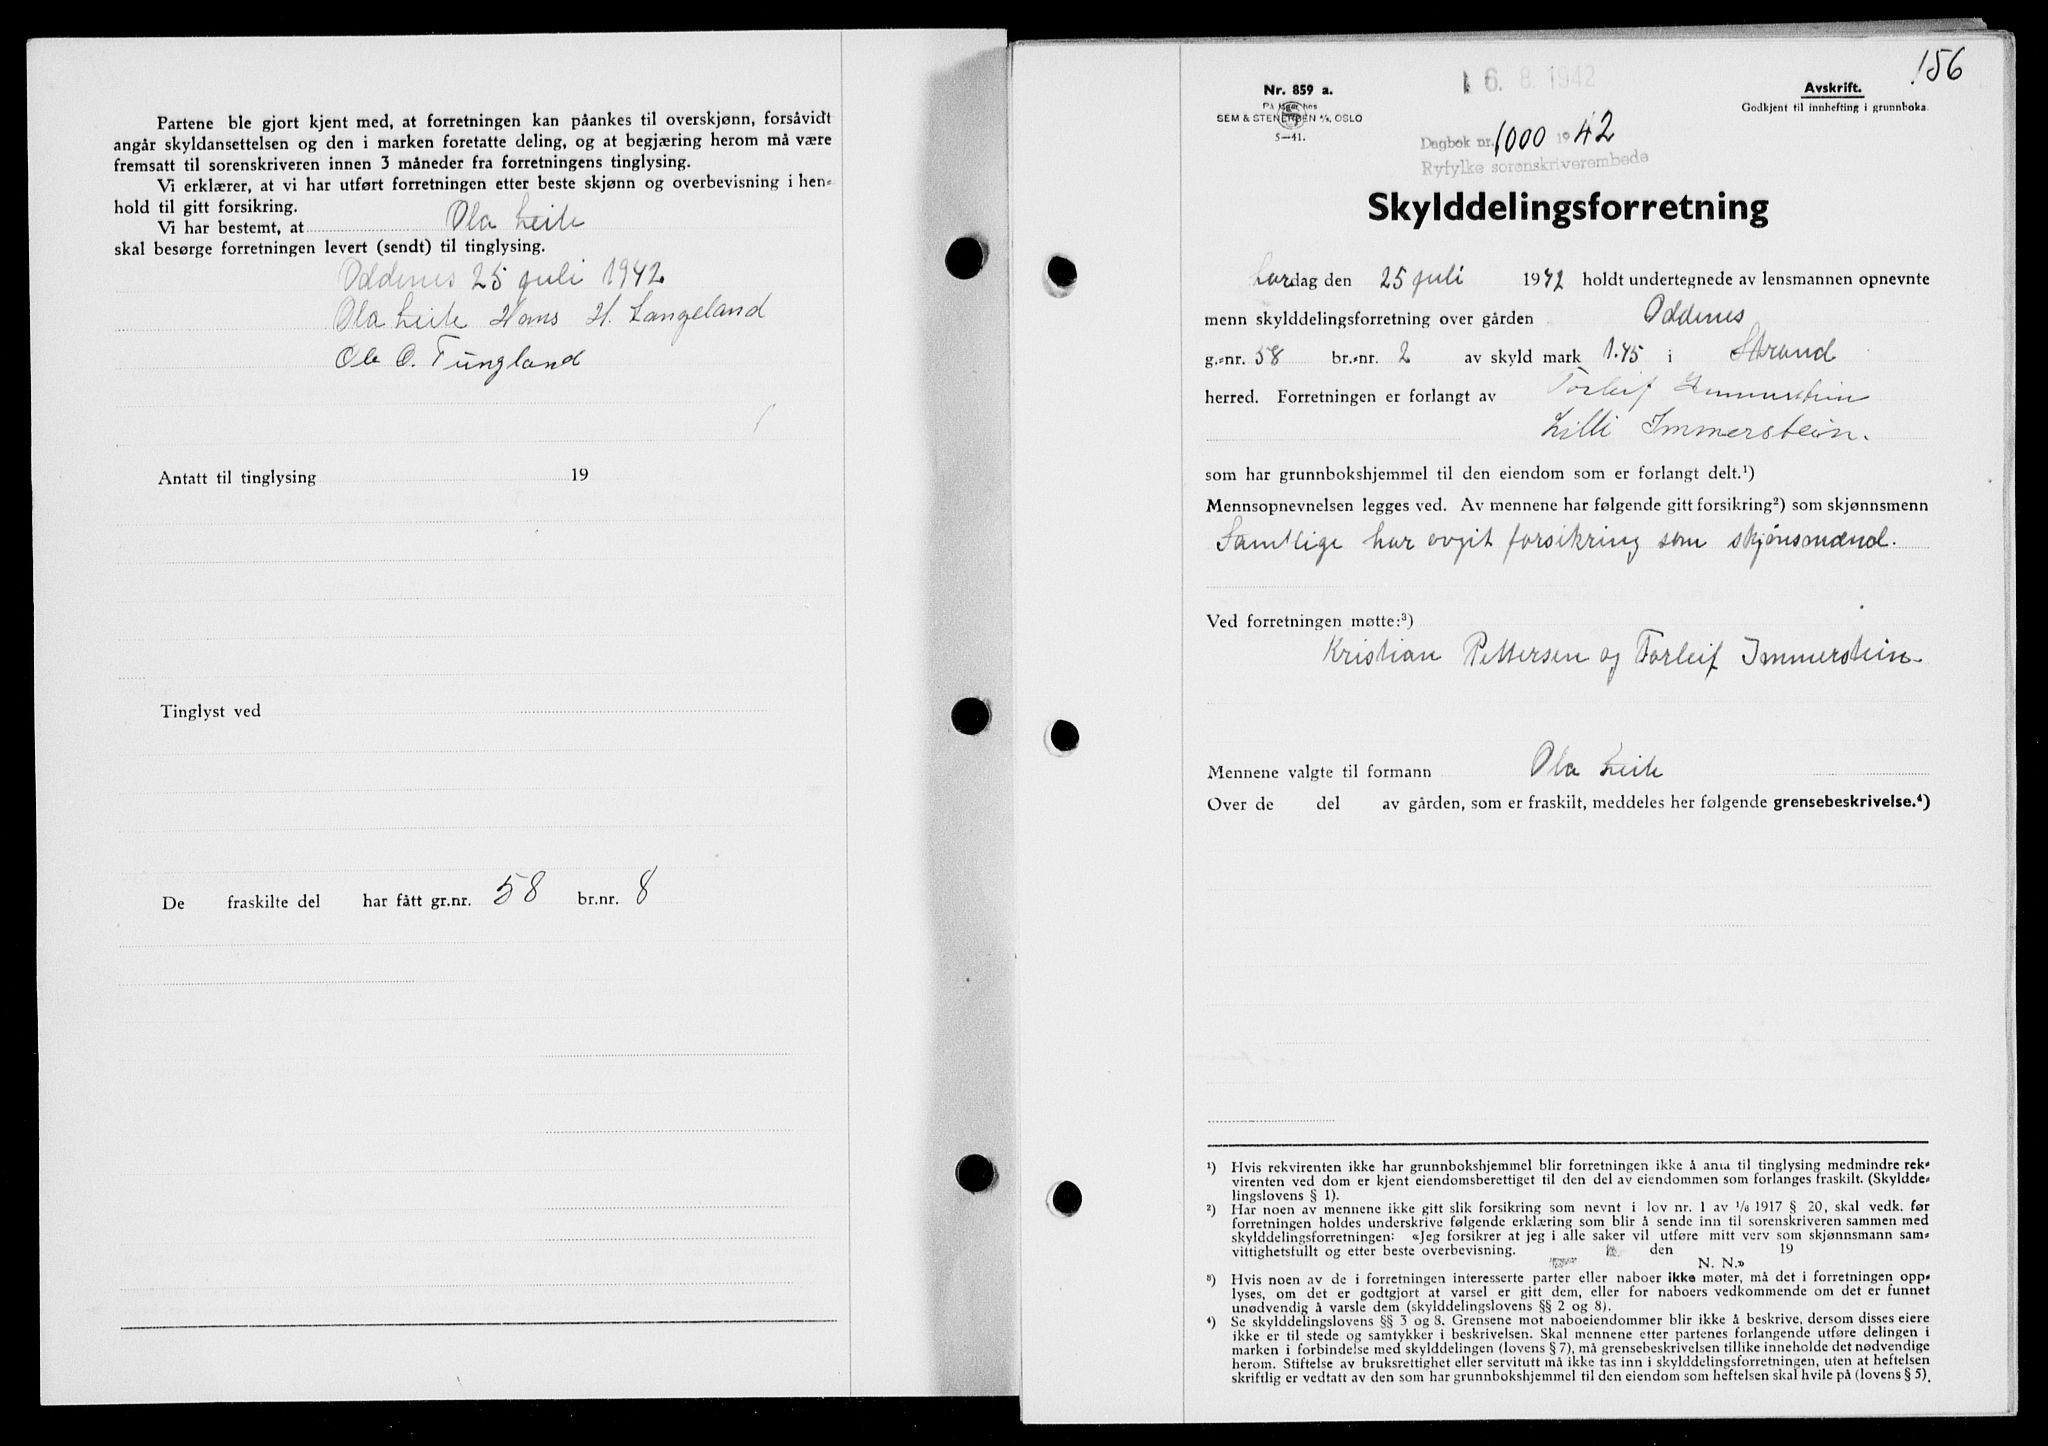 Partene ble gjort kjent med, at forretningen kan påankes til overskjønn, forsåvidt
angår skyldansettelsen og den i marken foretatte deling, og at begjæring herom må være
fremsatt til sorenskriveren innen 3 måneder fra forretningens tinglysing.
Vi erklærer, at vi har utført forretningen etter beste skjønn og overbevisning i hen-
hold til gitt forsikring.
Vi har bestemt, at Ola Leite
skal besørge forretningen levert (sendt) til tinglysing.
Oddenes 25 juli 1942
Ola Leite Hans H. Langeland
Ole O. Tungland
Antatt til tinglysing 19
Tinglyst ved
De fraskilte del har fått gr.nr. 58 br.nr. 8
156
Nr. 859 a.
På lager hos
SEM & STENERSEN A/S, OSLO
5—41.
16. 8. 1942
Dagbok nr. 1000 1942
Ryfylke sorenskriverembede
Avskrift.
Godkjent til innhefting i grunnboka.
Skylddelingsforretning
Lørdag den 25 juli 1942 holdt undertegnede av lensmannen opnevnte
menn skylddelingsforretning over gården Oddenes
g.-nr. 58 br.-nr. 2 av skyld mark 1.45 i Strand
herred. Forretningen er forlangt av Torleif Immerstein
Lilli Immerstein.
som har grunnbokshjemmel til den eiendom som er forlangt delt.¹)
Mennsopnevnelsen legges ved. Av mennene har følgende gitt forsikring²) som skjønnsmenn
Samtlige har avgit forsikring som skjønsmænd.
Ved forretningen møtte:³)
Kristian Pettersen og Torleif Immerstein.
Mennene valgte til formann Ola Leite
Over de del av gården, som er fraskilt, meddeles her følgende grensebeskrivelse.⁴)
¹) Hvis rekvirenten ikke har grunnbokshjemmel blir forretningen ikke å anta til tinglysing medmindre rek-
virenten ved dom er kjent eiendomsberettiget til den del av eiendommen som forlanges fraskilt. (Skyldde-
lingslovens § 1).
²) Har noen av mennene ikke gitt slik forsikring som nevnt i lov nr. 1 av 1/6 1917 § 20, skal vedk. før
forretningen holdes underskrive følgende erklæring som blir å sende inn til sorenskriveren sammen med
skylddelingsforretningen: «Jeg forsikrer at jeg i alle saker vil utføre mitt verv som skjønnsmann sam-
vittighetsfullt og etter beste overbevisning. den 19
N. N.»
³) Hvis noen av de i forretningen interesserte parter eller naboer ikke møter, må det i forretningen opp-
lyses, om det er godtgjort at varsel er gitt dem, eller for naboers vedkommende om det er funnet
unødvendig å varsle dem (skylddelingslovens §§ 2 og 8).
⁴) Se skylddelingslovens §§ 3 og 8. Grensene mot naboeiendommer blir ikke å beskrive, dersom disses eiere
ikke er til stede og samtykker i beskrivelsen. Skal mennene etter partenes forlangende utføre delingen i
marken i forbindelse med skylddelingen (lovens § 7), må grensebeskrivelsen tillike inneholde det nødvendige
herom. Stiftelse av bruksrettighet eller servitutt må ikke tas inn i skylddelingsforretningen, uten at heftelsen
skriftlig er vedtatt av den som har grunnbokshjemmel til den eiendom som heftelsen skal hvile på (lovens § 5).